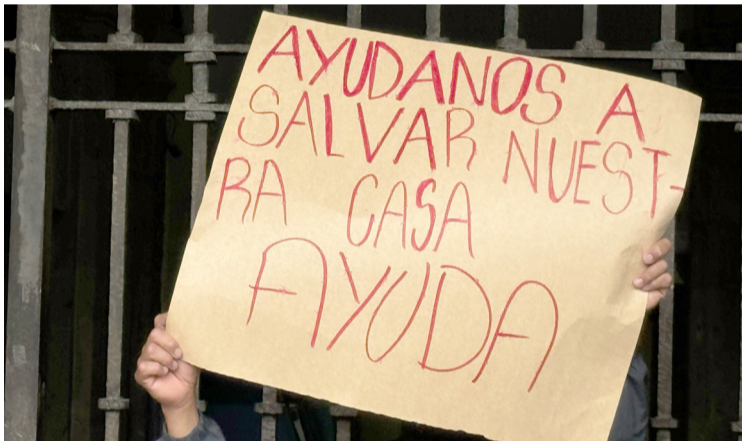 AYUDANOS A
SALVAR NUEST-
RA CASA
AYUDA